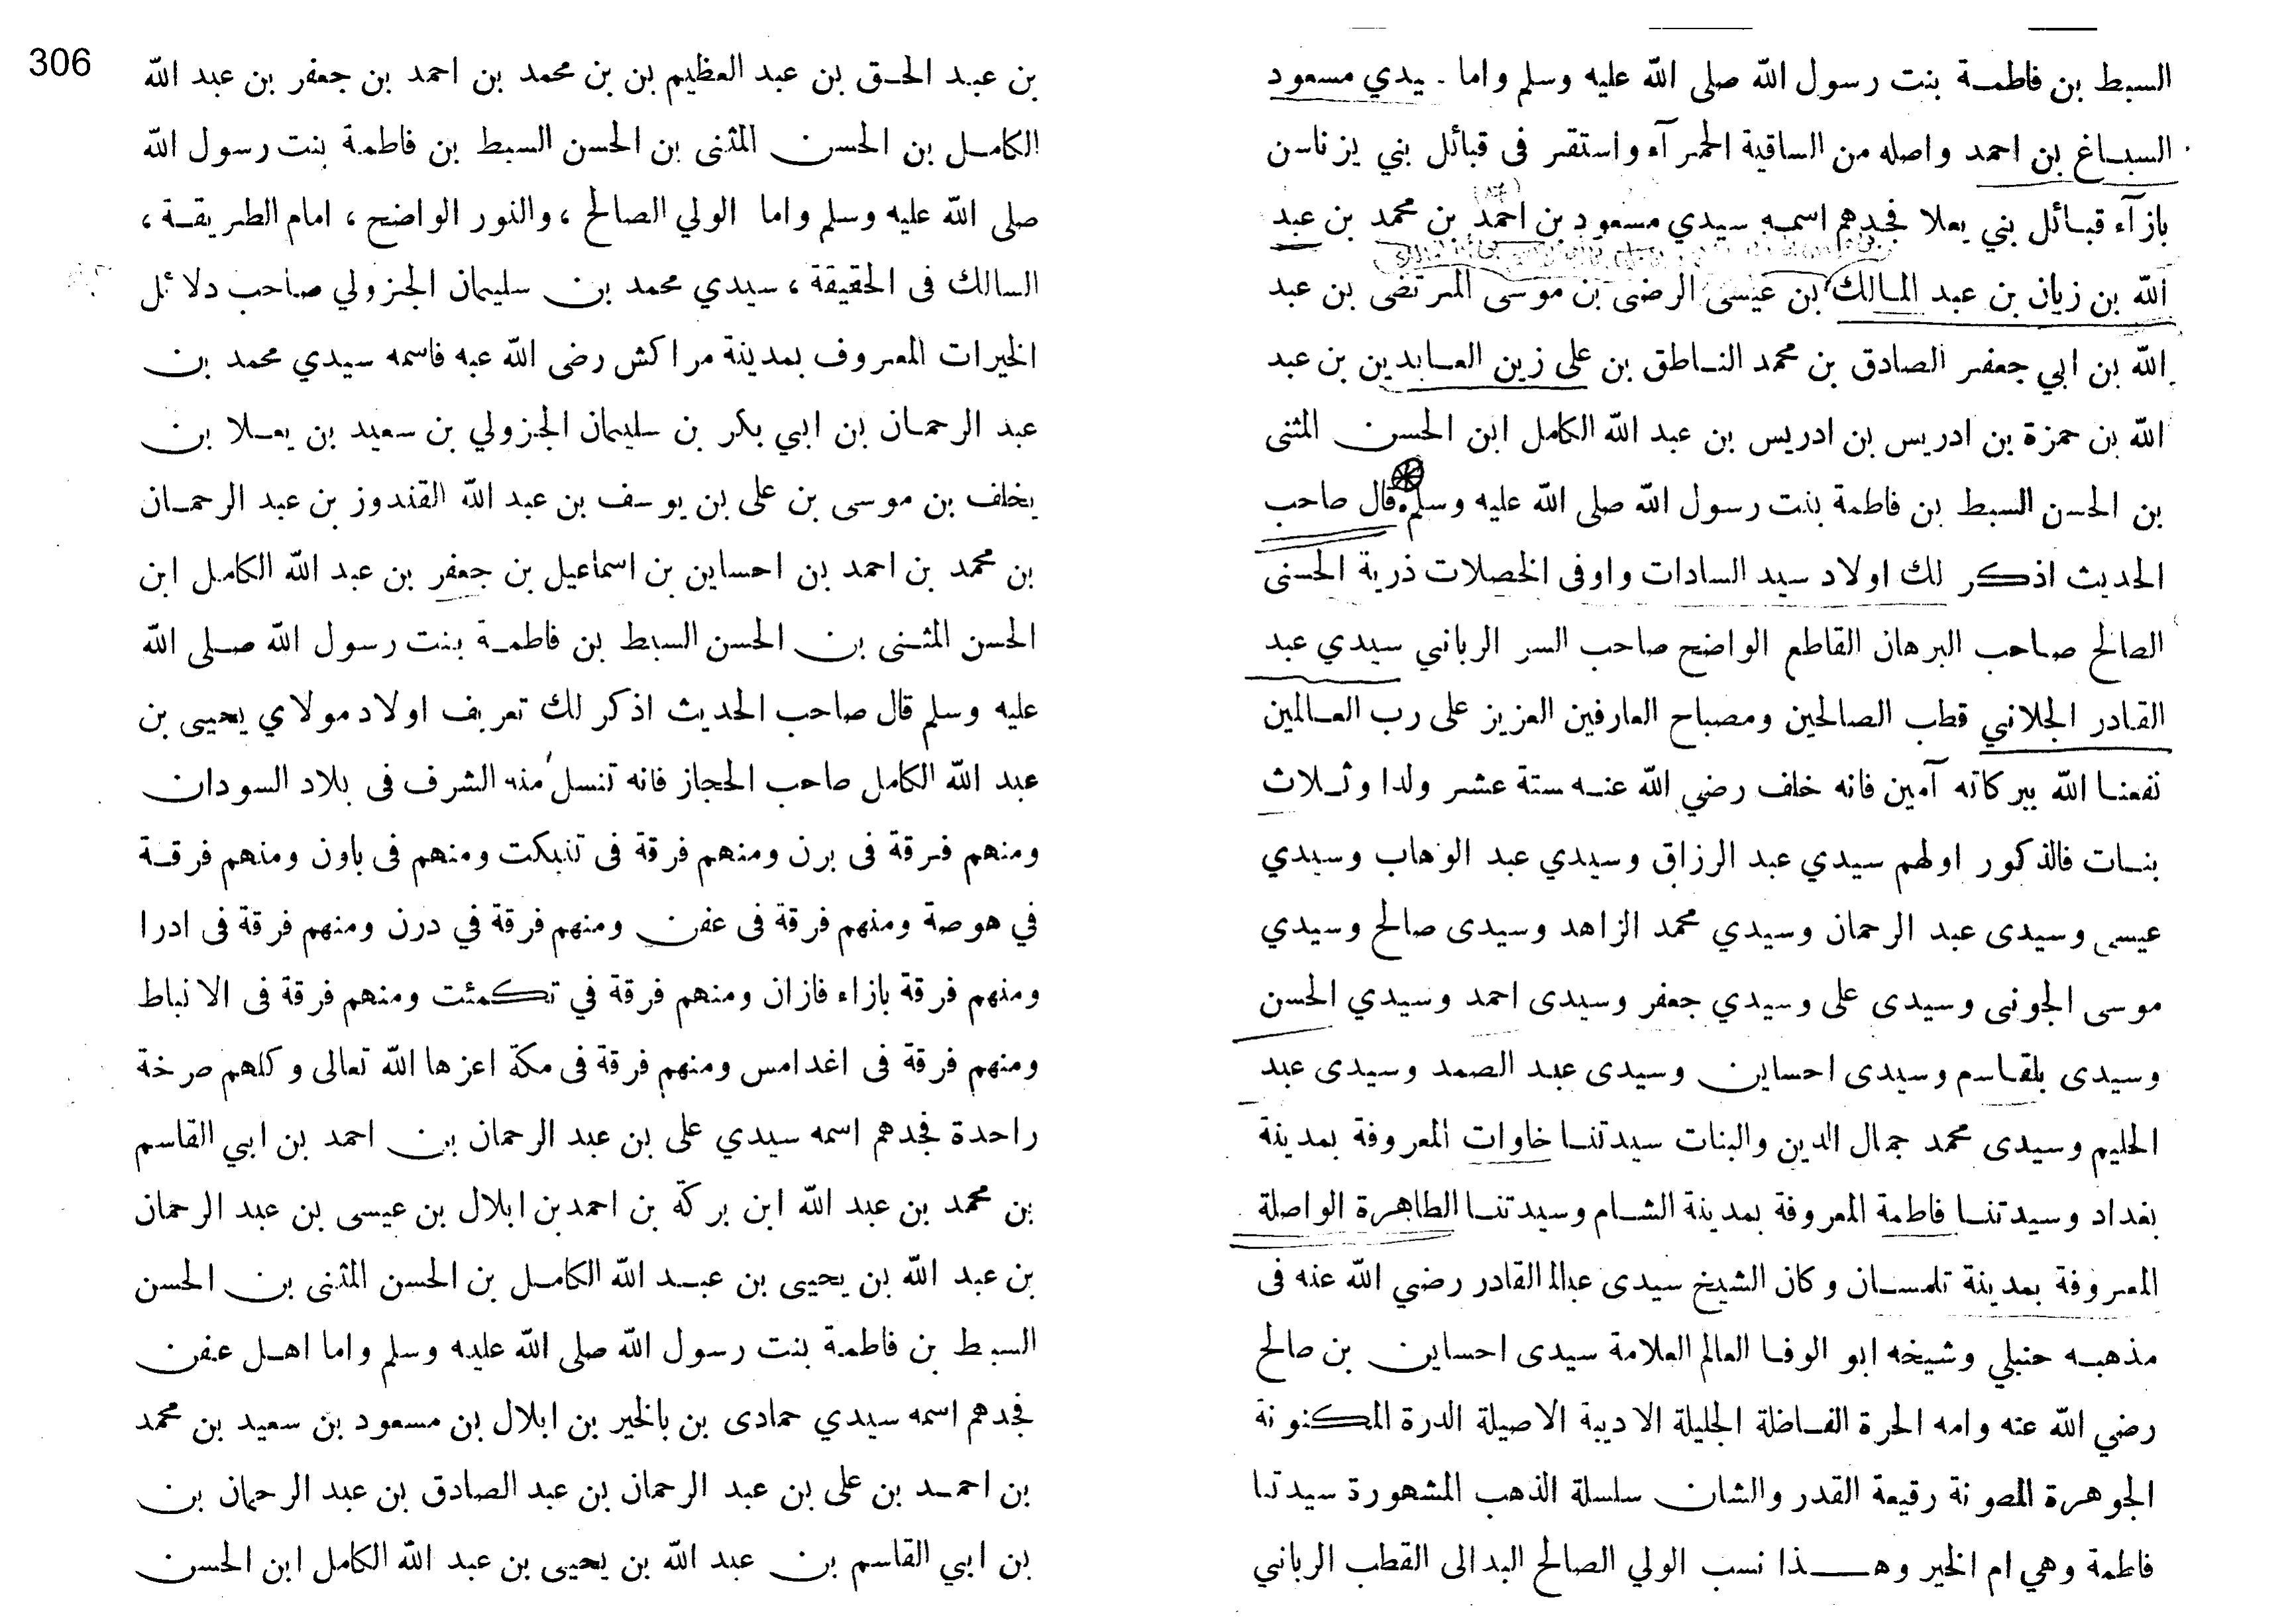 السبط بن فاطمة بنت رسول الله صلى الله عليه وسلم واما . يدي مسعود
السباغ بن احمد واصله من الساقية الحمرآء واستقر فى قبائل بني يزناسن
بازآء قبائل بني يعلا فجدهم اسمه سيدي مسعود بن احمد بن محمد بن عبد
الله بن زيان بن عبد المالك بن عيسى الرضى بن موسى المرتضى بن عبد
الله بن ابي جعفر الصادق بن محمد الناطق بن على زين العابدين بن عبد
الله بن حمزة بن ادريس بن ادريس بن عبد الله الكامل ابن الحسن المثنى
بن الحسن السبط بن فاطمة بنت رسول الله صلى الله عليه وسلم. قال صاحب
الحديث اذكر لك اولاد سيد السادات واوفى الخصلات ذرية الحسنى
الصالح صاحب البرهان القاطع الواضح صاحب السر الرباني سيدي عبد
القادر الجلاني قطب الصالحين ومصباح العارفين العزيز على رب العالمين
نفعنا الله ببركاته آمين فانه خلف رضي الله عنه ستة عشر ولدا وثلاث
بنات فالذكور اولهم سيدي عبد الرزاق وسيدي عبد الوهاب وسيدي
عيسى وسيدى عبد الرحمان وسيدي محمد الزاهد وسيدى صالح وسيدي
موسى الجونى وسيدى على وسيدي جعفر وسيدى احمد وسيدي الحسن
وسيدى بلقاسم وسيدى احساين وسيدى عبد الصمد وسيدى عبد
الحليم وسيدى محمد جمال الدين والبنات سيدتنا خاوات المعروفة بمدينة
بغداد وسيدتنا فاطمة المعروفة بمدينة الشام وسيدتنا الطاهرة الواصلة
المعروفة بمدينة تلمسان وكان الشيخ سيدى عبد القادر رضي الله عنه فى
مذهبه حنبلي وشيخه ابو الوفا العالم العلامة سيدى احساين بن صالح
رضي الله عنه وامه الحرة الفاظلة الجليلة الاديبة الاصيلة الدرة المكنونة
الجوهرة المصونة رقيعة القدر والشان سلسلة الذهب المشهورة سيدتنا
فاطمة وهي ام الخير وهذا نسب الولي الصالح البدالى القطب الرباني
306
بن عبد الحق بن عبد العظيم بن بن محمد بن احمد بن جعفر بن عبد الله
الكامل بن الحسن المثنى بن الحسن السبط بن فاطمة بنت رسول الله
صلى الله عليه وسلم واما الولي الصالح ، والنور الواضح ، امام الطريقة ،
السالك فى الحقيقة ، سيدي محمد بن سليمان الجزولي صاحب دلائل
الخيرات المعروف بمدينة مراكش رضى الله عبه فاسمه سيدي محمد بن
عبد الرحمان بن ابي بكر بن سليمان الجزولي بن سعيد بن يعلا بن
يخلف بن موسى بن على بن يوسف بن عبد الله القندوز بن عبد الرحمان
بن محمد بن احمد بن احساين بن اسماعيل بن جعفر بن عبد الله الكامل ابن
الحسن المثنى بن الحسن السبط بن فاطمة بنت رسول الله صلى الله
عليه وسلم قال صاحب الحديث اذكر لك تعريف اولاد مولاي يحيى بن
عبد الله الكامل صاحب الحجاز فانه تنسل منه الشرف فى بلاد السودان
ومنهم فرقة فى برن ومنهم فرقة فى تنبكت ومنهم فى باون ومنهم فرقة
في هوصة ومنهم فرقة فى عفن ومنهم فرقة في درن ومنهم فرقة فى ادرا
ومنهم فرقة بازاء فازان ومنهم فرقة في تكمئت ومنهم فرقة فى الانباط
ومنهم فرقة فى اغدامس ومنهم فرقة فى مكة اعزها الله تعالى وكلهم صرخة
راحدة فجدهم اسمه سيدي على بن عبد الرحمان بن احمد بن ابي القاسم
بن محمد بن عبد الله ابن بركة بن احمد بن ابلال بن عيسى بن عبد الرحمان
بن عبد الله بن يحيى بن عبد الله الكامل بن الحسن المثنى بن الحسن
السبط بن فاطمة بنت رسول الله صلى الله عليه وسلم واما اهل عفن
فجدهم اسمه سيدي حمادى بن بالخير بن ابلال بن مسعود بن سعيد بن محمد
بن احمد بن على بن عبد الرحمان بن عبد الصادق بن عبد الرحمان بن
بن ابي القاسم بن عبد الله بن يحيى بن عبد الله الكامل ابن الحسن